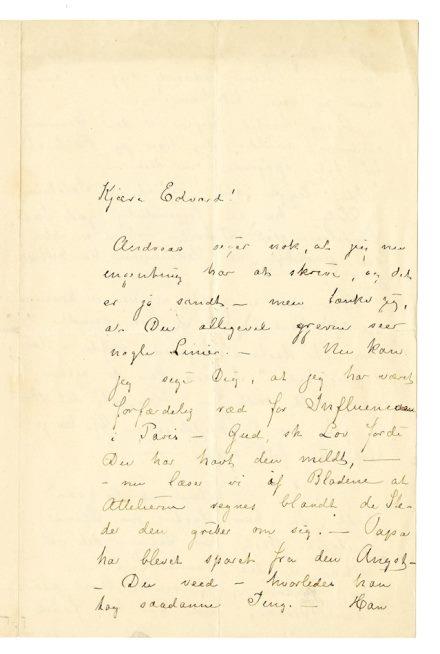 Kjære Edvard!
Andreas siger nok, at jeg nu
ingenting har at skrive, og det
er jo sandt – men tænker jeg,
at Du allegevel gjerne seer
nogle Linier. – Nu kan
jeg sige Dig, at jeg har været
forfærdelig ræd for Influenzaen
i Paris – Gud, sk Lov fordi
Du har havt den mildt, —
– nu læser vi af Bladene at
Attelierne regnes blandt de Ste-
der den griber om sig. – Papa
har blevet sparet fra den Angst –
– Du veed – hvorledes han
tog saadanne Ting. – Han